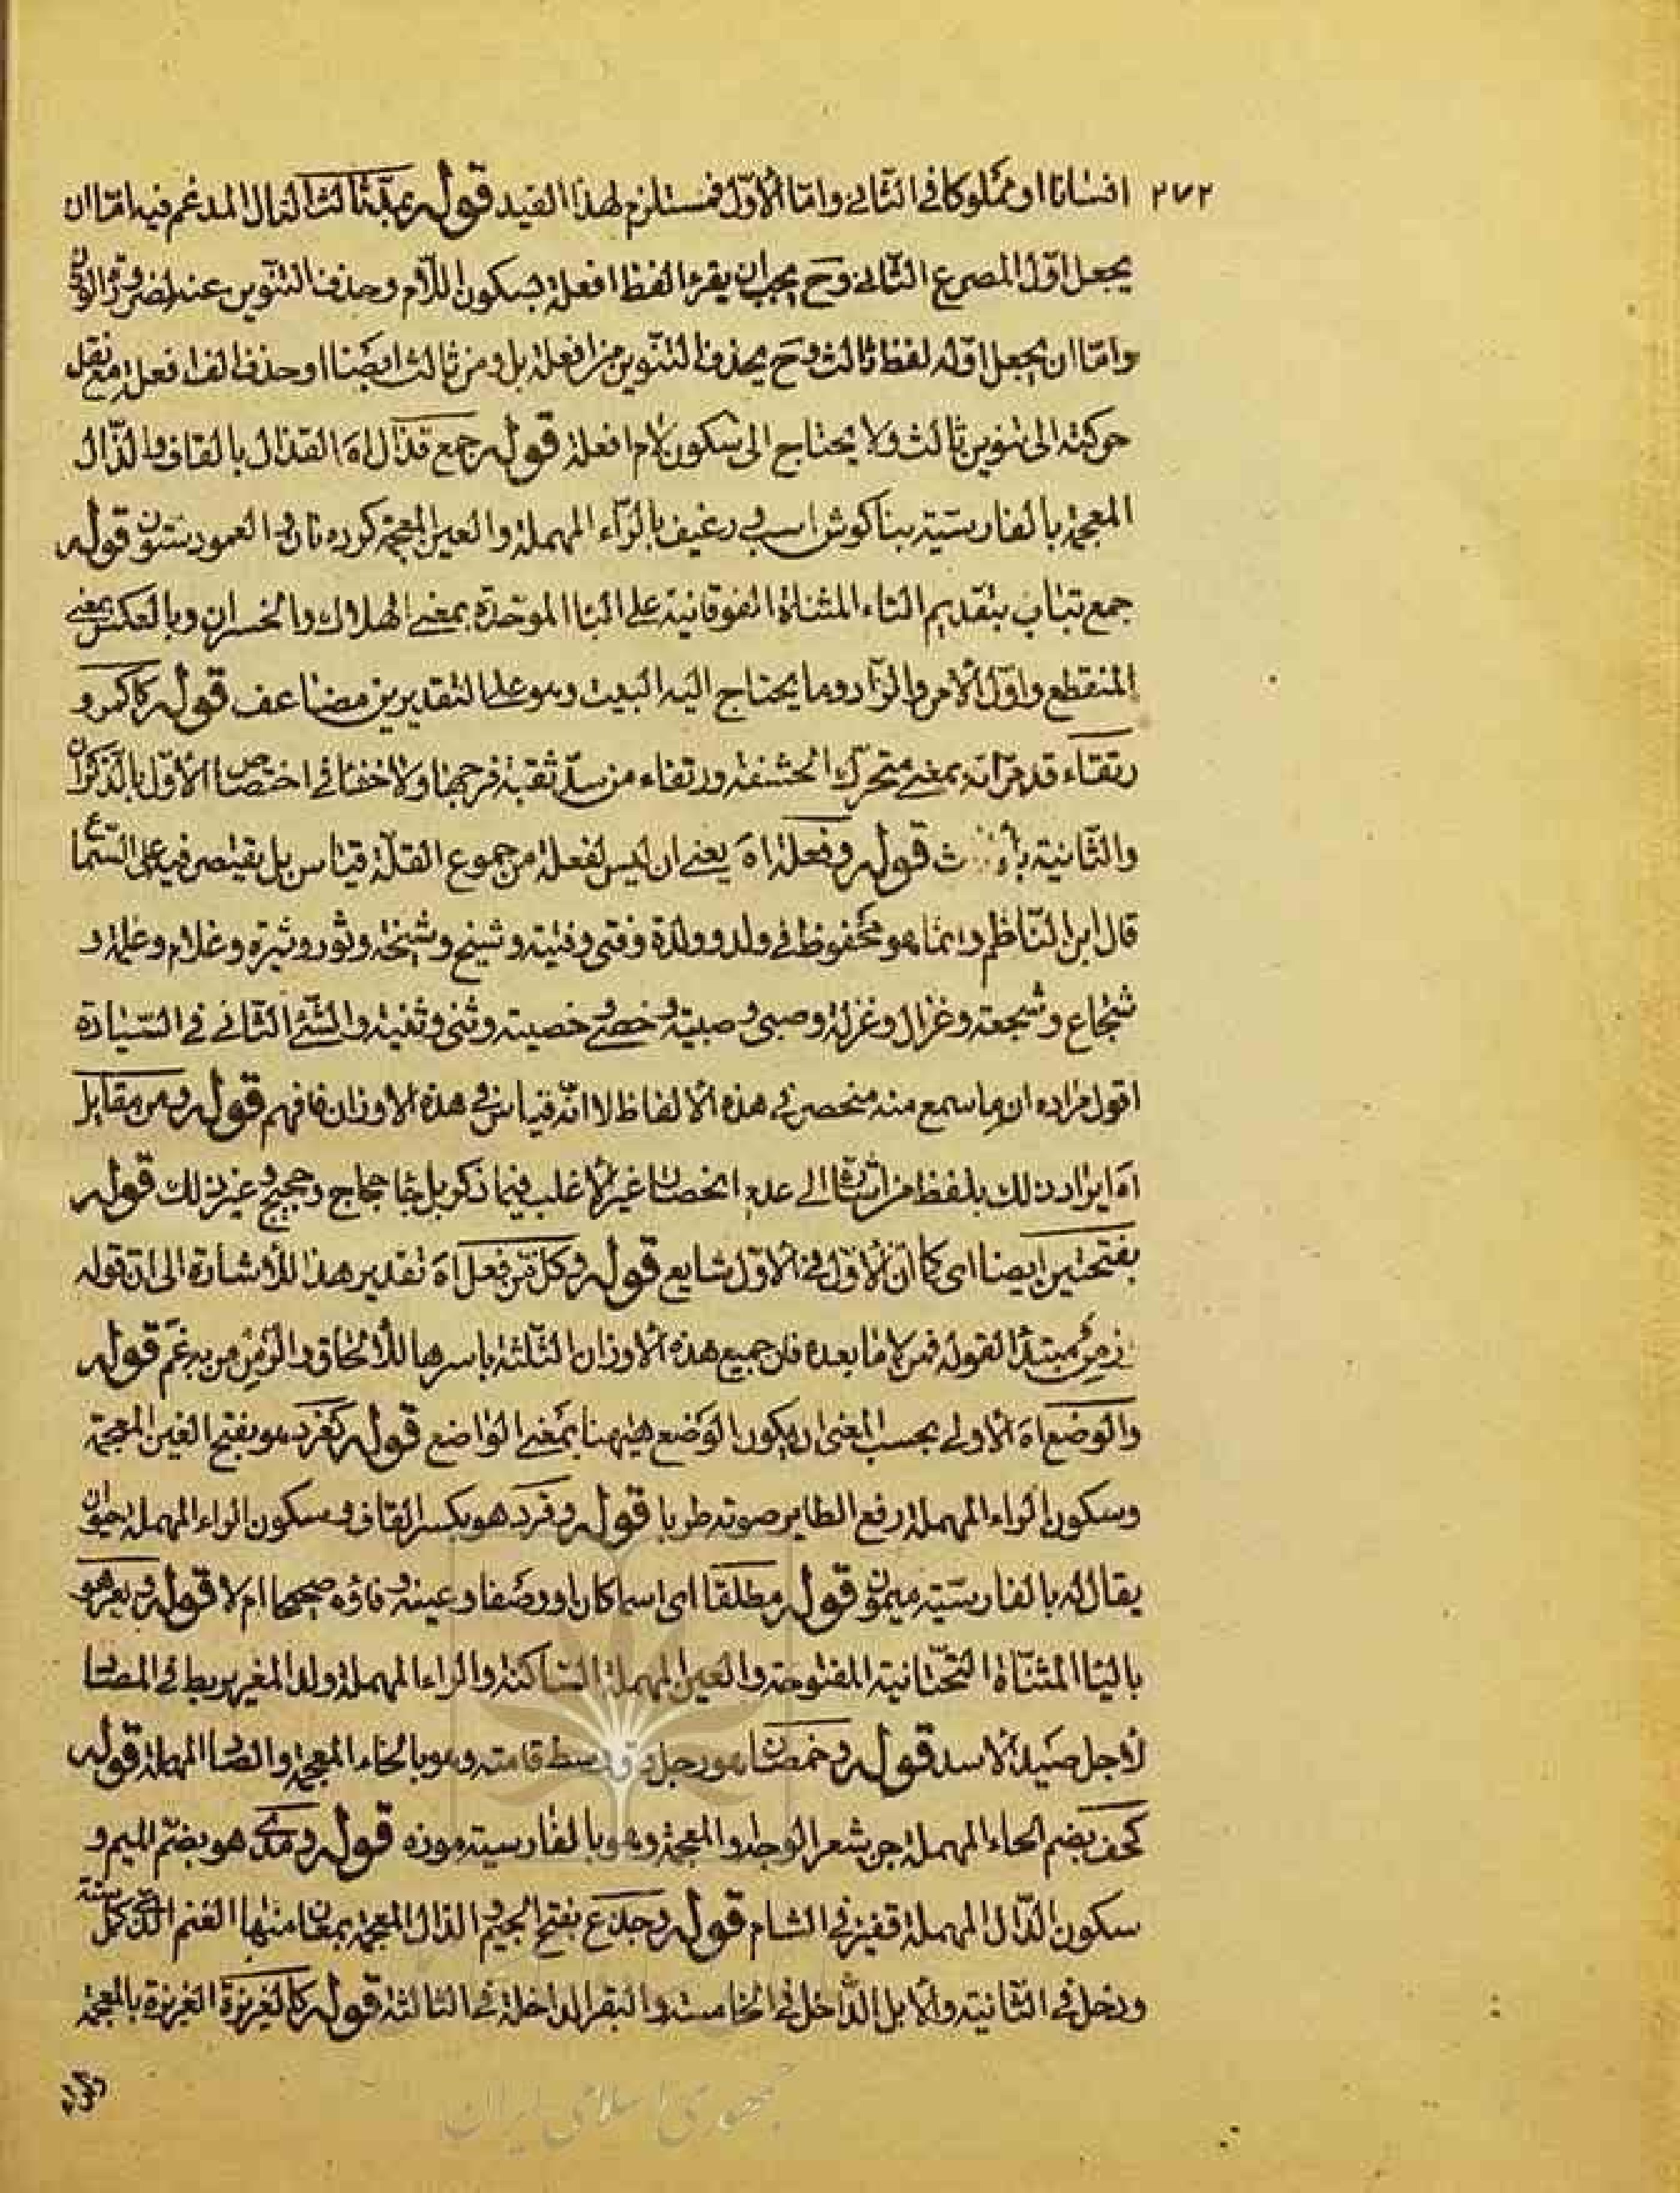 ٢٧٢ انسانا او مملوكا فى الثانى واما الأوّل فمستلزم لهذا القيد قوله بمدّ ثالث الدال المدغم فيه امّا ان
يجعل اوّل المصرع الثانى وح يجب ان يقرء لفظ افعلة بسكون اللّام وحذف التنوين عنه لضرورة الوزن
وامّا ان يجعل اوّله لفظ ثالث وح يحذف التنوين من افعلة بل ومن ثالث ايضا او حذف الف افعلة مع نقل
حركته الى تنوين ثالث ولا يحتاج الى سكون لام افعلة قوله جمع قذال اه القذال بالقاف والذّال
المعجمة بالفارسيّة بناكوش اسب ورغيف بالرّاء المهملة والغين المعجمة كرده نان والعمود ستون قوله
جمع تباب بتقديم التاء المثناة الفوقانية على البا الموحّدة بمعنى الهلاك والخسران وبالعكس بمعنى
المنقطع واوّل الأمر والزاد وما يحتاج اليه البيت وهو على التقديرين مضاعف قوله كاكمر و
رتقاء قد مرّ انه بمعنى متحرّك الحشفة ورتقاء من سدّ ثقبة فرجها ولا خفا فى اختصاص الأوّل بالذكران
والثانية قوله وفعلة اه يعنى ان ليس لفعلة من جموع القلّة قياس بل يقتصر فيه على السّماع
قال ابن النّاظم وانما هو محفوظ فى ولد وولدة وفتى وفتية وشيخ وشيخة وثور وثيرة وغلام وغلمة و
شجاع وشجعة وغزال وغزلة وصبى وصبية وخصى وخصية وثنى وثنية والثنى الثانى فى السّيادة
اقول مراده ان ما سمع منه منحصر فى هذه الألفاظ لا انّه قياس فى هذه الأوزان فافهم قوله ومن مقابل
اه ايراد ذلك بلفظ من اشارة الى عدم انحصار غير الأغلب فيما ذكر بل جا حجاج وحجيج وغير ذلك قوله
بفتحتين ايضا اى كما انّ الأوّل فى الأوّل شايع قوله وكل من فعل اه تقدير هذا للأشارة الى ان قوله
زمن مبتدأ لقوله قمن لا ما بعده فان جميع هذه الأوزان الثّلثة باسرها للألحاق والزمن من به غم قوله
والوضع اه الأولى بحسب المعنى ان يكون الوضع هيهنا بمعنى الواضع قوله كغرد هو بفتح الغين المعجمة
وسكون الراء المهملة رفع الطاير صوته طربا قوله وقرد هو بكسر القاف وسكون الراء المهملة حيوان
يقال له بالفارسيّة ميمون قوله مطلقا اى اسما كان او وصفا وعينه وفاؤه صحيحا ام لا قوله ويعر هو
باليا المثنّاة التّحتانية المفتوحة والعين المهملة السّاكنة والراء المهملة ولد المعز يربط فى المصتا
لأجل صيد الأسد قوله وخمصان هو رجل دقّ وسط قامته وهو بالخاء المعجمة والصاد المهملة قوله
كخف بضم الخاء وهو بالفارسية موزه قوله ومدى هو بضمّ الميم و
سكون الدّال المهملة قفيز فى الشام قوله وجذع بفتح الجيم والذال المعجمة بمعان منها الغنم الذى كمل سنة
ودخل فى الثانية والأبل الدّاخل فى الخامسة والبقر الداخلة فى الثالثة قوله كالغريزة الغريزة بالمعجمة
جمهوری اسلامی ایران